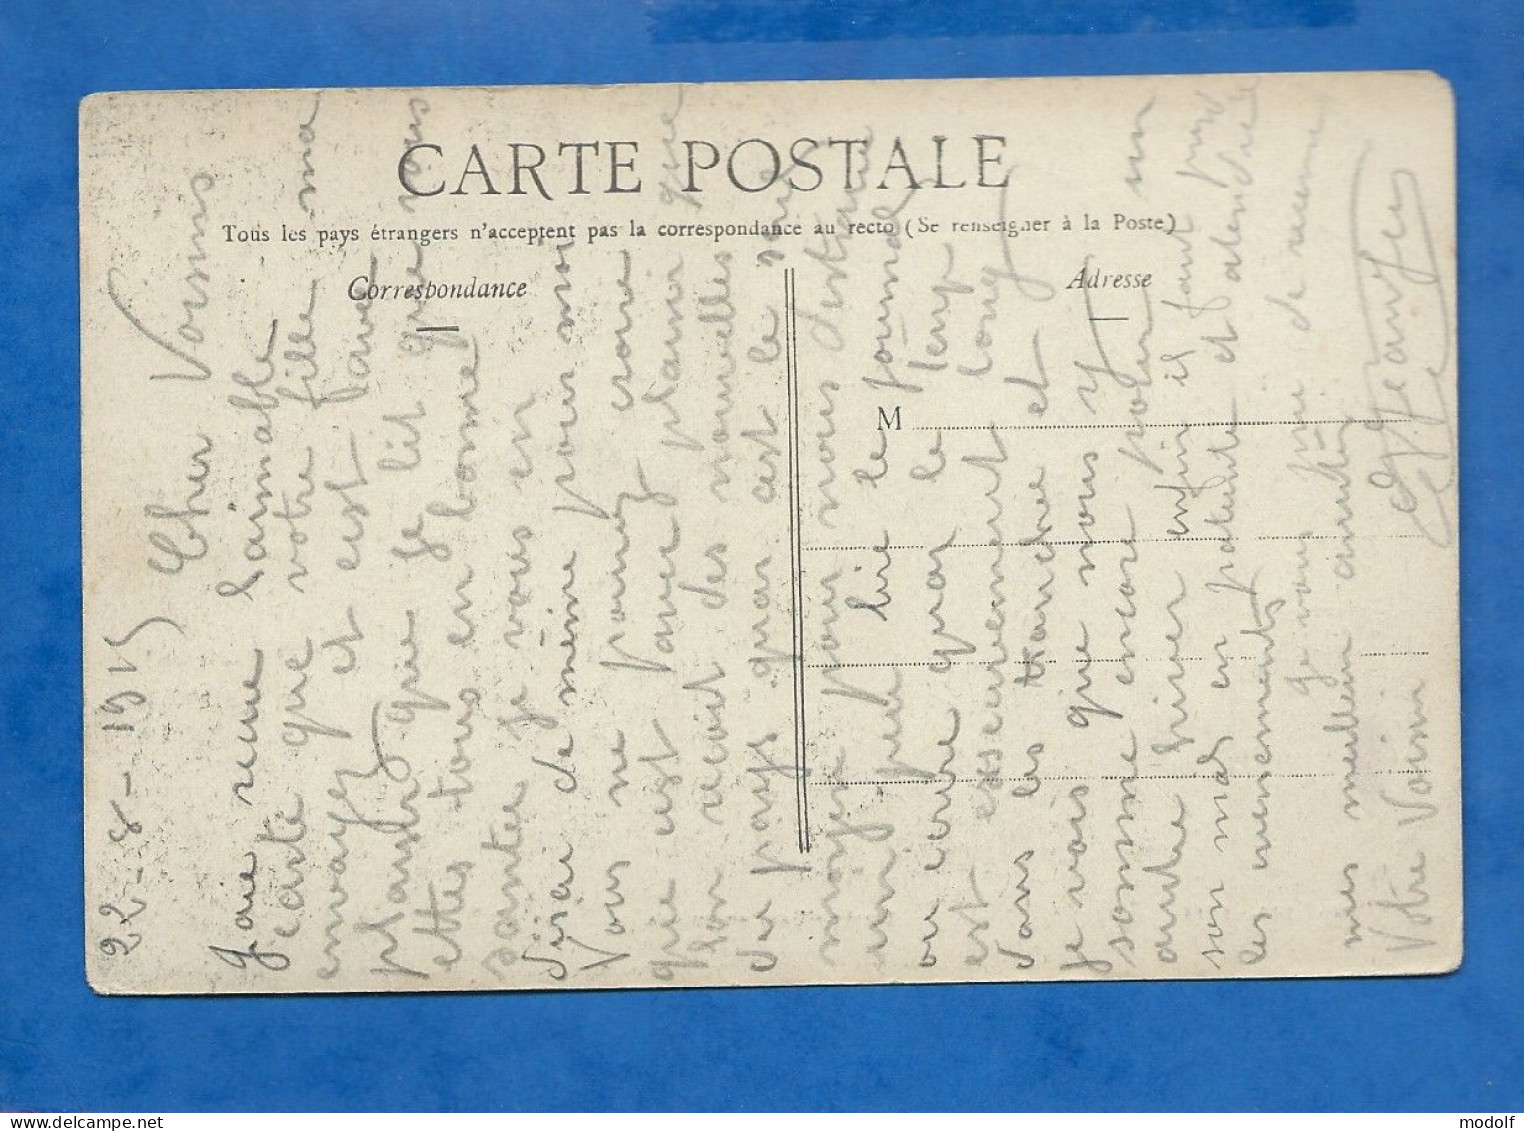 CARTE POSTALE
Tous les pays étrangers n'acceptent pas la correspondance au recto (Se renseigner à la Poste)
Correspondance
Adresse
M
22-8-1915
Cher Voisins
Jaie recue laimable
carte que votre fille ma
envoyez et est Pavez
plaisir que je lit que vous
ettes tous en bonne
santée je vous en
dirai de même pour moi
Vous ne pourriez croire
que est Pavez plaisir que
lon recoit des nouvelles
du pays quar cest le seul
moyen pour nous distraire
un peu lire le journal
ou ecrire quar le temp
est exserement long
dans les tranchee et
je vois que nous y
somme encore pour un
autre hiver enfin il faut prend
son mal en patiente et atendre
les evenements
je vous prie de recevoir
mes meilleur amitiés
Votre Voisin
modolf